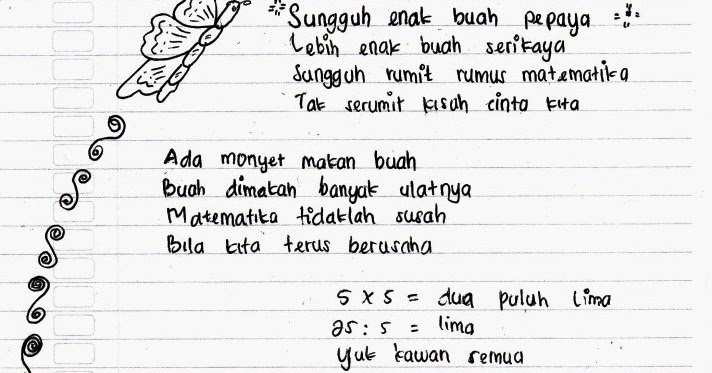 Sungguh enak buah pepaya
Lebih enak buah serikaya
Sungguh rumit rumus matematika
Tak serumit kisah cinta kita
Ada monyet makan buah
Buah dimakan banyak ulatnya
Matematika tidaklah susah
Bila kita terus berusaha
5 x 5 = dua puluh lima
25 : 5 = lima
Yuk kawan semua